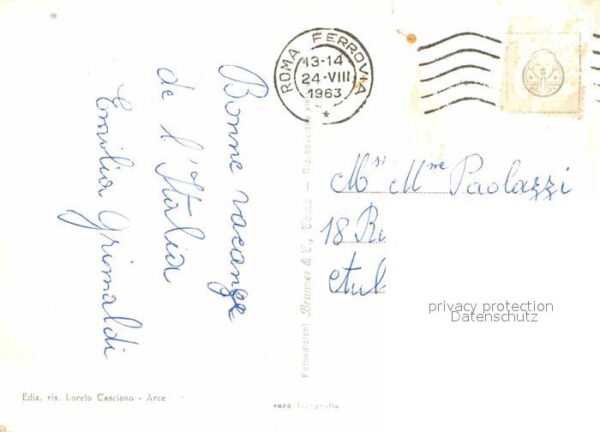 ROMA FERROVIA
13-14
24-VIII
1963
Bonne vacanze
de l'Italia
Emilia Grimaldi
Msi Mme Paolazzi
18 R
privacy protection
Datenschutz
Fotoedizioni Brunner & C., Como - Riproduzione
Ediz. ris. Loreto Casciano - Arce
vera fotografia